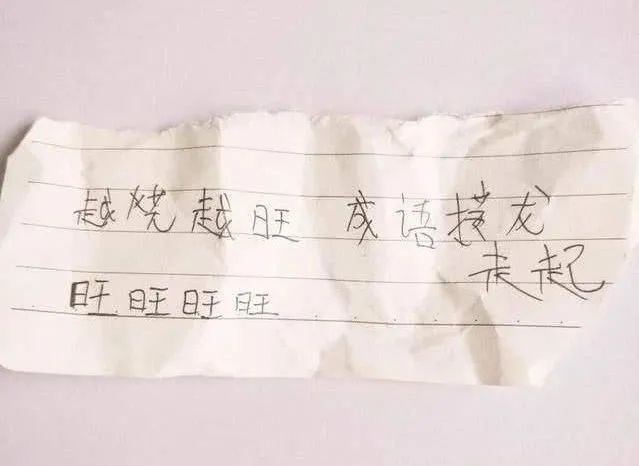 越烧越旺 成语接龙
走起
旺旺旺旺..........